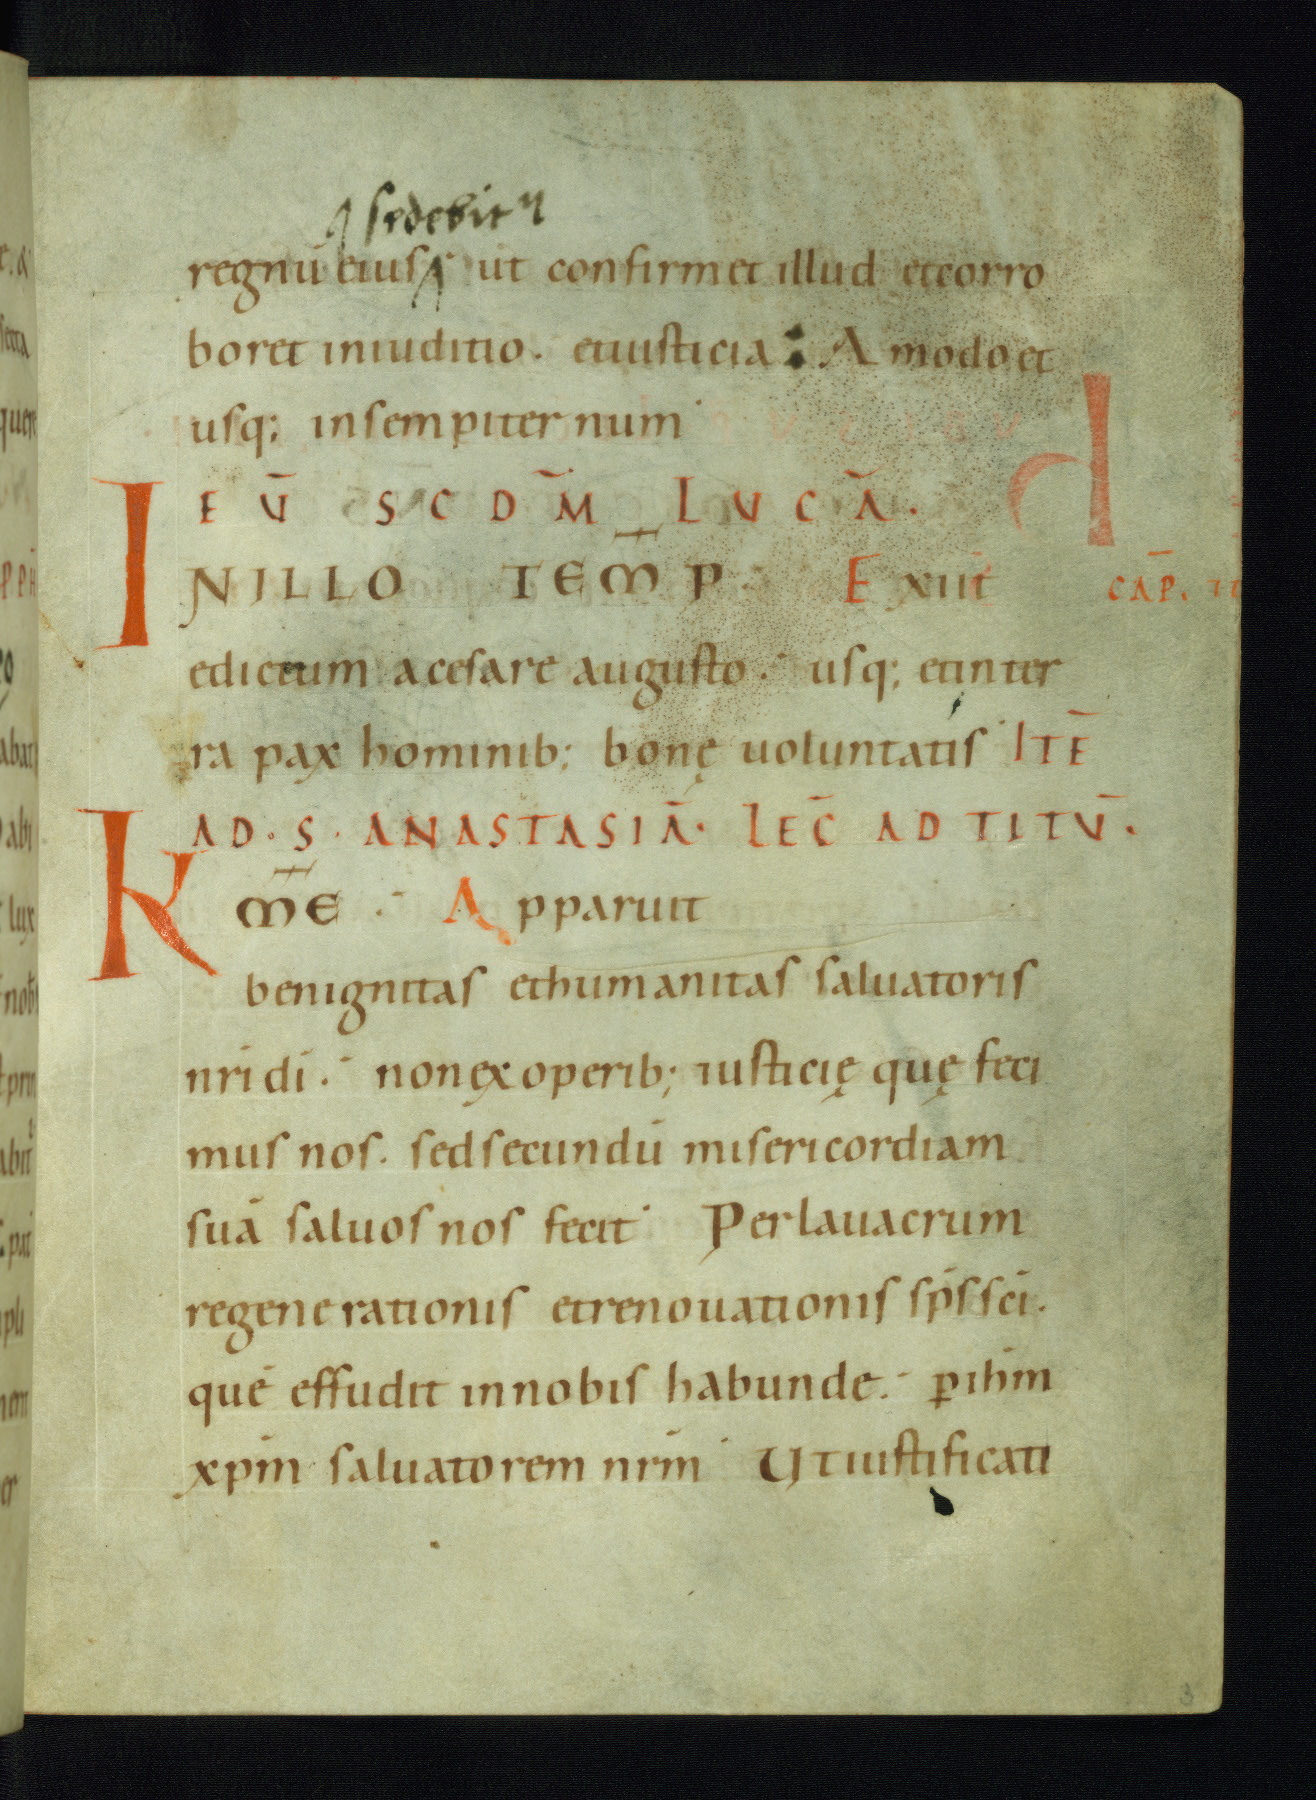 sedebit
regnū eius ut confirmet illud etcorro
boret iniuditio. etiusticia: Amodo et
usq; insempiternum
EŪ SCDM̄ LUCĀ.
INILLO TEMP̄ Exiit CAP̄. II
edictum acesare augusto. usq; etinter
ra pax hominib; bonę uoluntatis ITĒ
AD. S. ANASTASIĀ. LEC̄ AD TITŪ.
KM̄E Apparuit
benignitas ethumanitas saluatoris
nr̄i dī. nonęxoperib; iusticię quę feci
mus nos. sedsecundū misericordiam
suā saluos nos fecit Perlauacrum
regenerationis etrenouationis sp̄s sc̄i.
quē effudit innobis habunde. ꝑ ih̄m
xp̄m saluatorem nr̄m Utiustificati
3